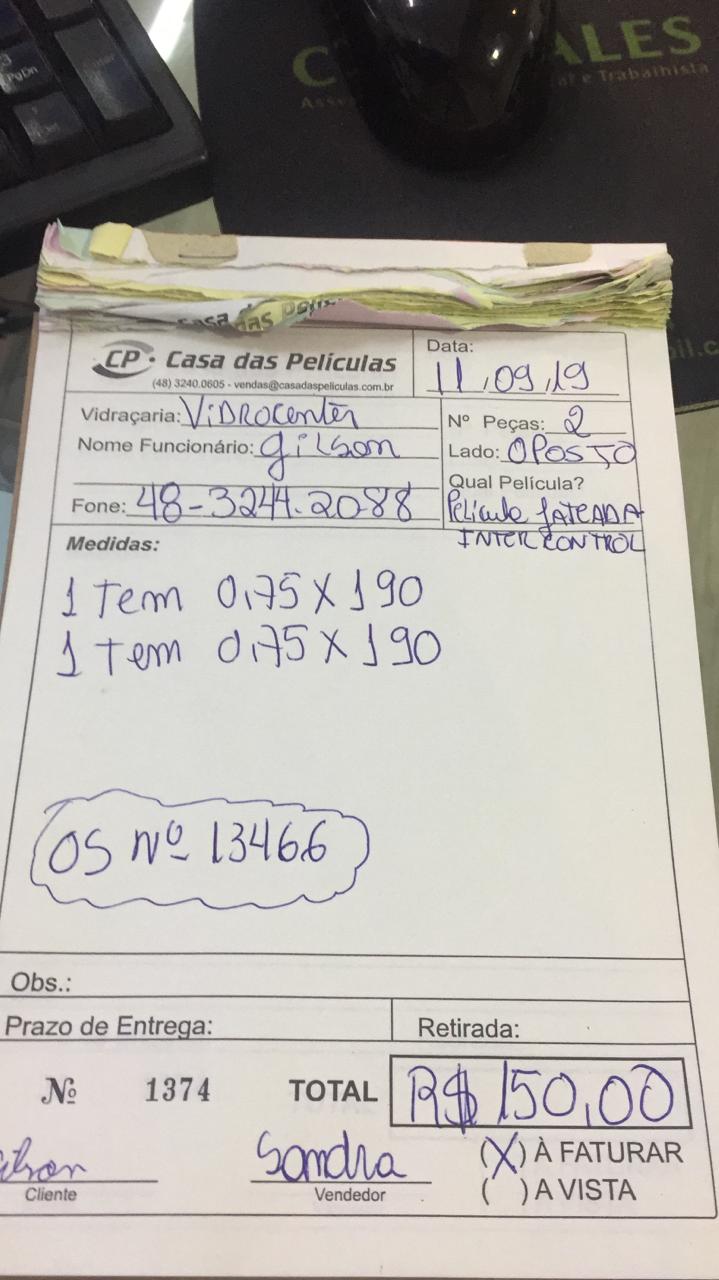 ALES
al e Trabalhista
Casa das Pelíc
CP · Casa das Películas
(48) 3240.0605 - vendas@casadaspeliculas.com.br
Data:
11,09,19
Vidraçaria: ViDROCENTER
Nome Funcionário: Gilson
Fone: 48-3244.2088
Nº Peças: 2
Lado: OPOSTO
Qual Película?
Película JATEADA
INTER CONTROL
Medidas:
1 Tem 0,75 X 190
1 Tem 0,75 X 190
OS Nº 13466
Obs.:
Prazo de Entrega:
Retirada:
Nº 1374
TOTAL R$ 150,00
ilson
Cliente
Sandra
Vendedor
(X) À FATURAR
( ) A VISTA